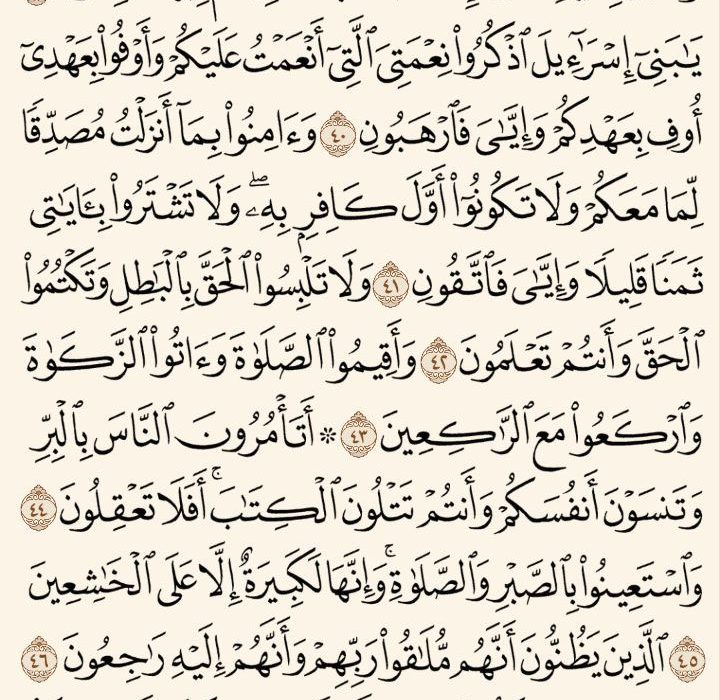 يَٰبَنِيٓ إِسۡرَٰٓءِيلَ ٱذۡكُرُواْ نِعۡمَتِيَ ٱلَّتِيٓ أَنۡعَمۡتُ عَلَيۡكُمۡ وَأَوۡفُواْ بِعَهۡدِيٓ
أُوفِ بِعَهۡدِكُمۡ وَإِيَّٰيَ فَٱرۡهَبُونِ ٤٠ وَءَامِنُواْ بِمَآ أَنزَلۡتُ مُصَدِّقٗا
لِّمَا مَعَكُمۡ وَلَا تَكُونُوٓاْ أَوَّلَ كَافِرِۭ بِهِۦۖ وَلَا تَشۡتَرُواْ بِـَٔايَٰتِي
ثَمَنٗا قَلِيلٗا وَإِيَّٰيَ فَٱتَّقُونِ ٤١ وَلَا تَلۡبِسُواْ ٱلۡحَقَّ بِٱلۡبَٰطِلِ وَتَكۡتُمُواْ
ٱلۡحَقَّ وَأَنتُمۡ تَعۡلَمُونَ ٤٢ وَأَقِيمُواْ ٱلصَّلَوٰةَ وَءَاتُواْ ٱلزَّكَوٰةَ
وَٱرۡكَعُواْ مَعَ ٱلرَّٰكِعِينَ ٤٣ * أَتَأۡمُرُونَ ٱلنَّاسَ بِٱلۡبِرِّ
وَتَنسَوۡنَ أَنفُسَكُمۡ وَأَنتُمۡ تَتۡلُونَ ٱلۡكِتَٰبَۚ أَفَلَا تَعۡقِلُونَ ٤٤
وَٱسۡتَعِينُواْ بِٱلصَّبۡرِ وَٱلصَّلَوٰةِۚ وَإِنَّهَا لَكَبِيرَةٌ إِلَّا عَلَى ٱلۡخَٰشِعِينَ
٤٥ ٱلَّذِينَ يَظُنُّونَ أَنَّهُم مُّلَٰقُواْ رَبِّهِمۡ وَأَنَّهُمۡ إِلَيۡهِ رَٰجِعُونَ ٤٦